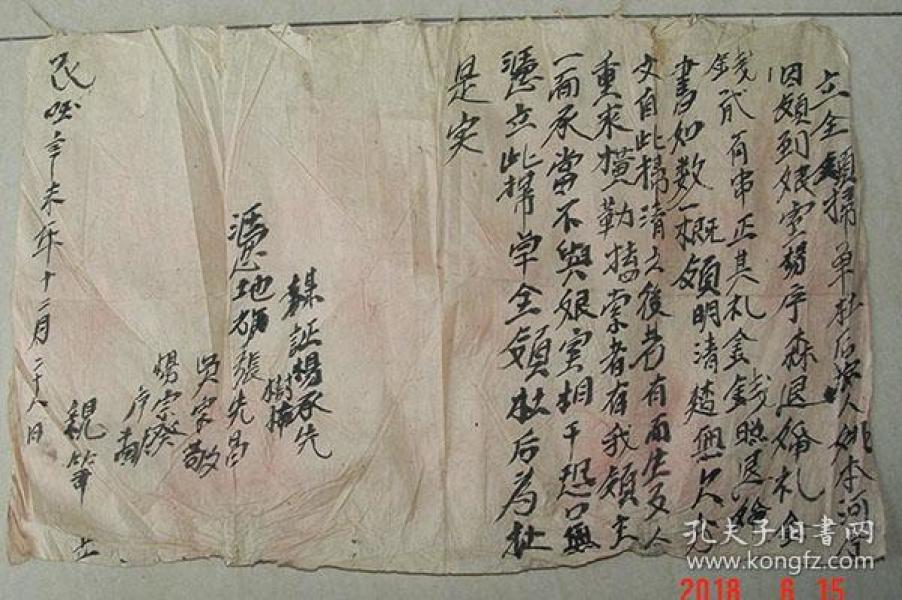 立全領掃單杜后字人姚本河今
因領到娘室楊序森退婚礼金
錢貳百串正其礼金錢照退婚
書如数一概領明清楚無欠分
文自此掃清之後若有再生反人
重求橫勒搕索者有我領主
一面承當不與娘室相干恐口無
憑立此掃單全領杜后為杜
是实
媒証楊承先
樹
憑地鄰張先昌
吳宗敬
楊宗葵
序南
民国辛未年十二月二十八日
親筆 立
孔夫子旧书网
www.kongfz.com
2018 6 15